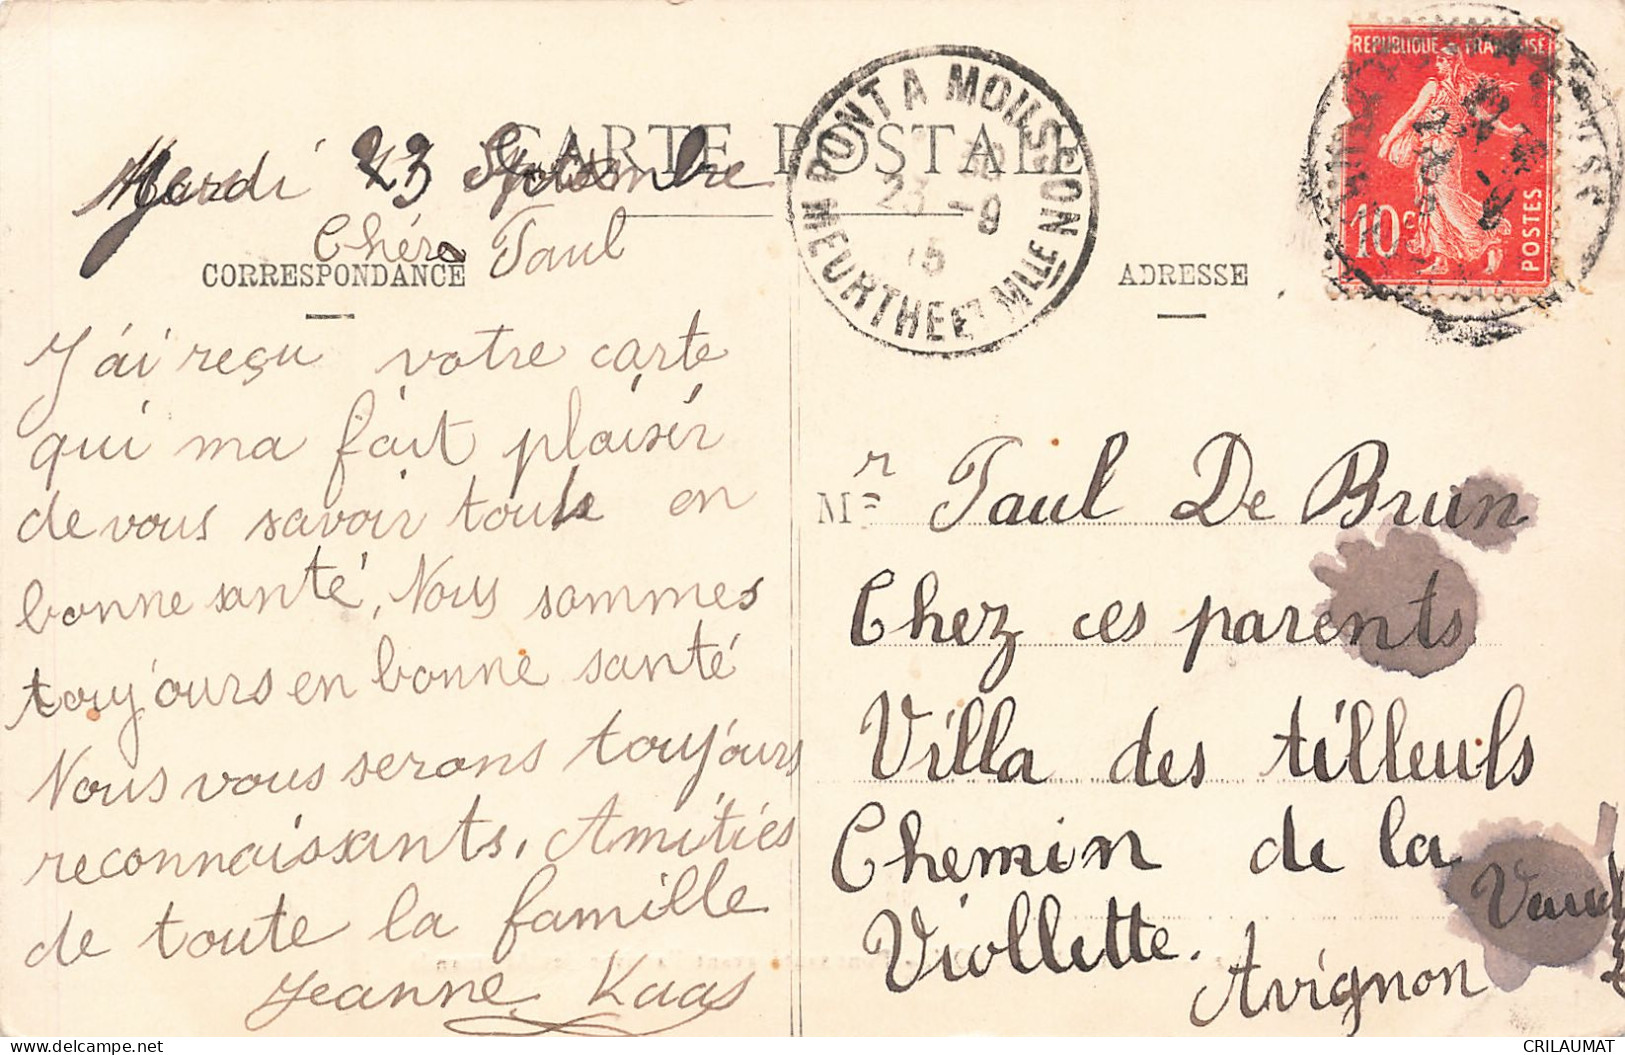 CARTE POSTALE
Mardi 23 Septembre
Chère Paul
CORRESPONDANCE
J'ai reçu votre carte
qui ma fait plaisir
de vous savoir tous en
bonne santé, Nous sommes
toujours en bonne santé
Nous vous serons toujours
reconnaissants. Amitiés
de toute la famille
Jeanne Kaas
PONT A MOUSSON
MEURTHE ET MLLE
23 -9
15
REPUBLIQUE FRANÇAISE
10c
POSTES
ADRESSE
Mr Paul De Brun
Chez ces parents
Villa des tilleuls
Chemin de la
Viollette.
Avignon
CRILAUMAT